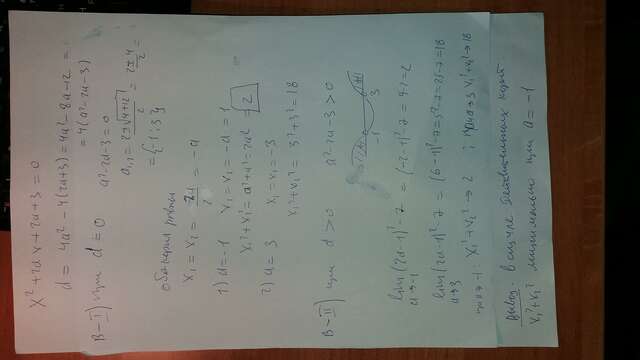 x² + 2ax + 2a + 3 = 0
d = 4a² - 4(2a+3) = 4a² - 8a - 12 =
= 4(a² - 2a - 3)
В-I) при d = 0 a² - 2a - 3 = 0
a₁,₂ = (2 ± √(4+12))/2 = (2 ± 4)/2 =
= {-1; 3}
оба корня равны
x₁ = x₂ = -2a/2 = -a
1) a = -1 x₁ = x₂ = -a = 1
x₁² + x₂² = a² + a² = 2a² = 2
2) a = 3 x₁ = x₂ = -3
x₁² + x₂² = 3² + 3² = 18
В-II) при d > 0 a² - 2a - 3 > 0
-1 3
lim (2a-1)² - 7 = (-2-1)² - 7 = 9 - 7 = 2
a→-1
lim (2a-1)² - 7 = (6-1)² - 7 = 5² - 7 = 25 - 7 = 18
a→3
при a→-1: x₁² + x₂² → 2 ; при a→3 x₁² + x₂² → 18
Вывод. в случае действительных корней
x₁² + x₂² минимально при a = -1